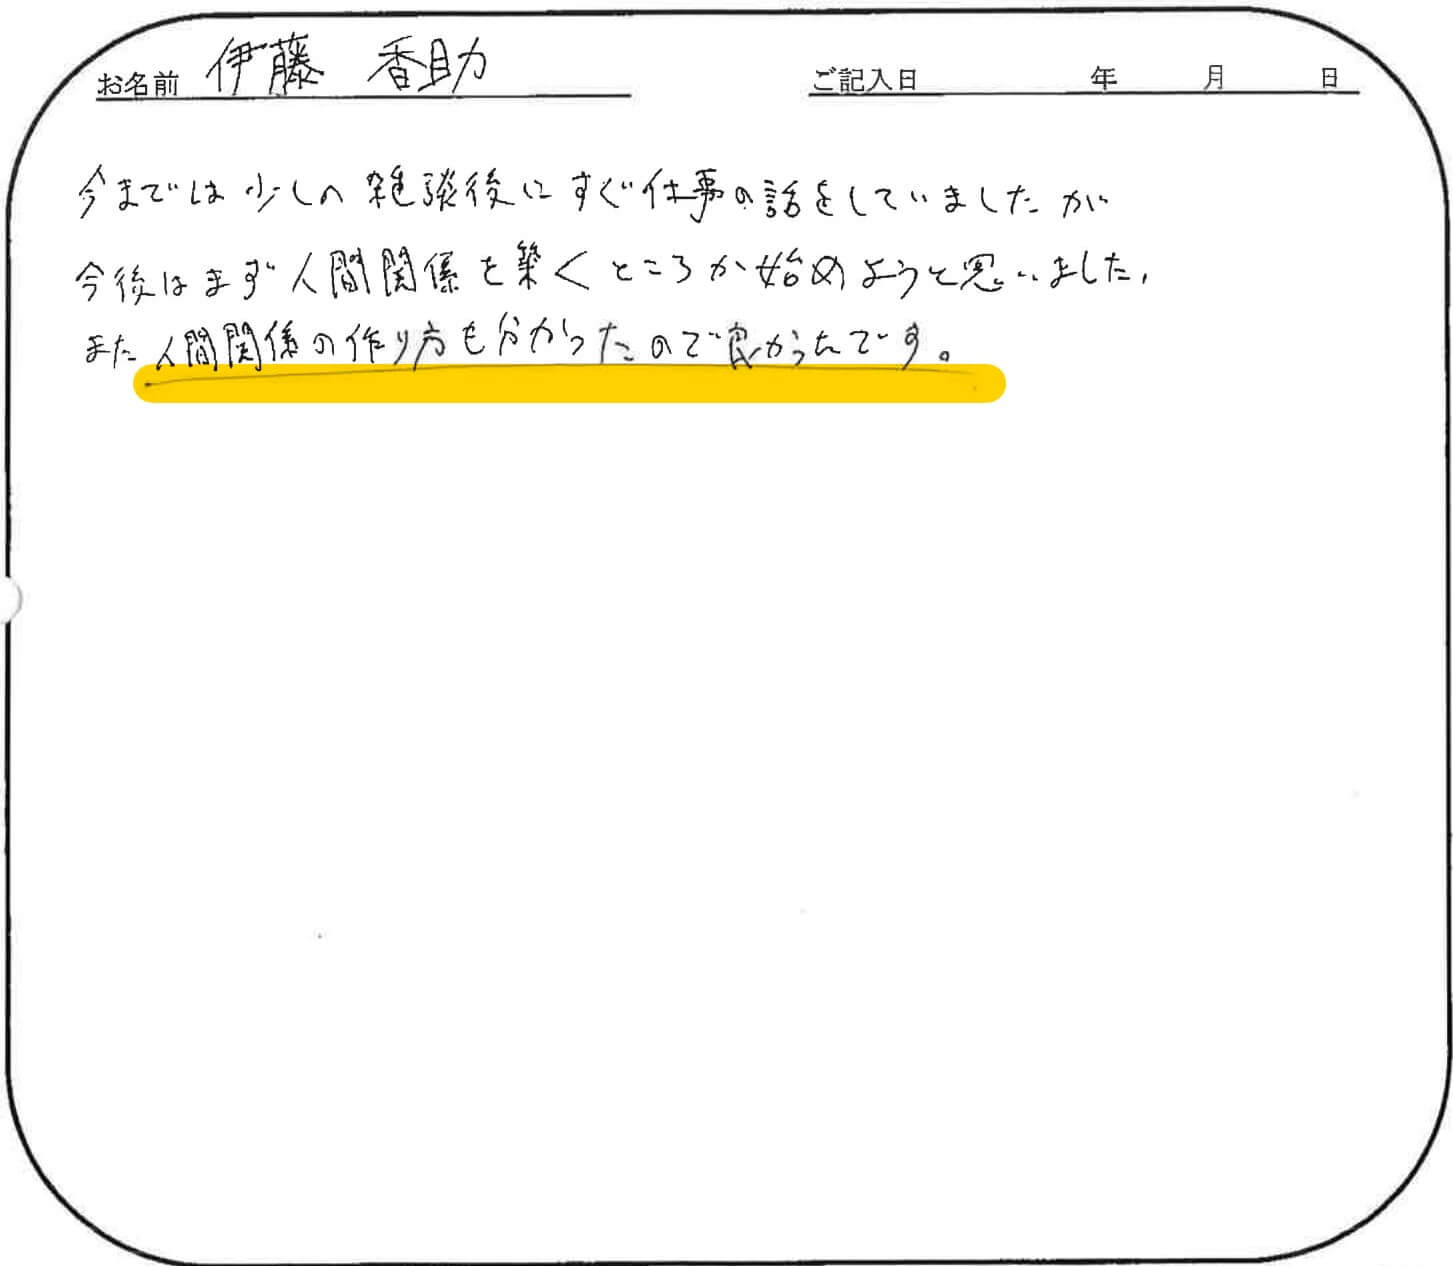 お名前 伊藤 香助 ご記入日 年 月 日
今までは少しの雑談後にすぐ仕事の話をしていましたが
今後はまず人間関係を築くところか始めようと思いました,
また人間関係の作り方も分かったので良かったです。